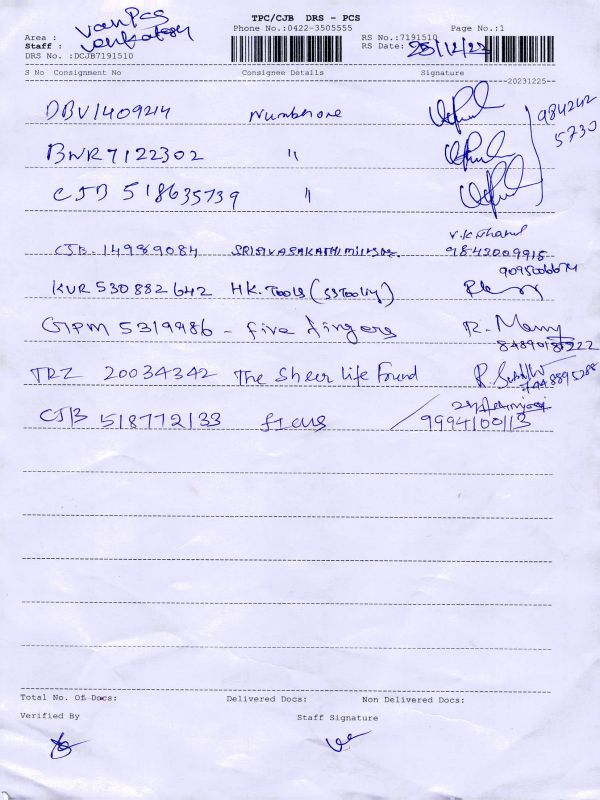 TPC/CJB DRS - PCS
Van Pcs
Area :
Phone No.:0422-3505555
Page No.:1
Staff : Venkatesh
RS No.:7191510
DRS No. :DCJB7191510
RS Date: 25/12/23
S No Consignment No Consignee Details Signature
20231225
DBV1409214 Numberone
984242
5730
BNR7122302 "
CJB 518635739 "
CJB. 14989084 SRI SIVASAKATHI MILLS 9842009915
9095006674
KUR 530882642 HK. Tools (SSTooling)
GPM 5319986 - five fingers R. Many
TRZ 20034342 The Sheer Life Found
CJB 518772133 ficus
9994100113
Total No. Of Docs: Delivered Docs: Non Delivered Docs:
Verified By Staff Signature